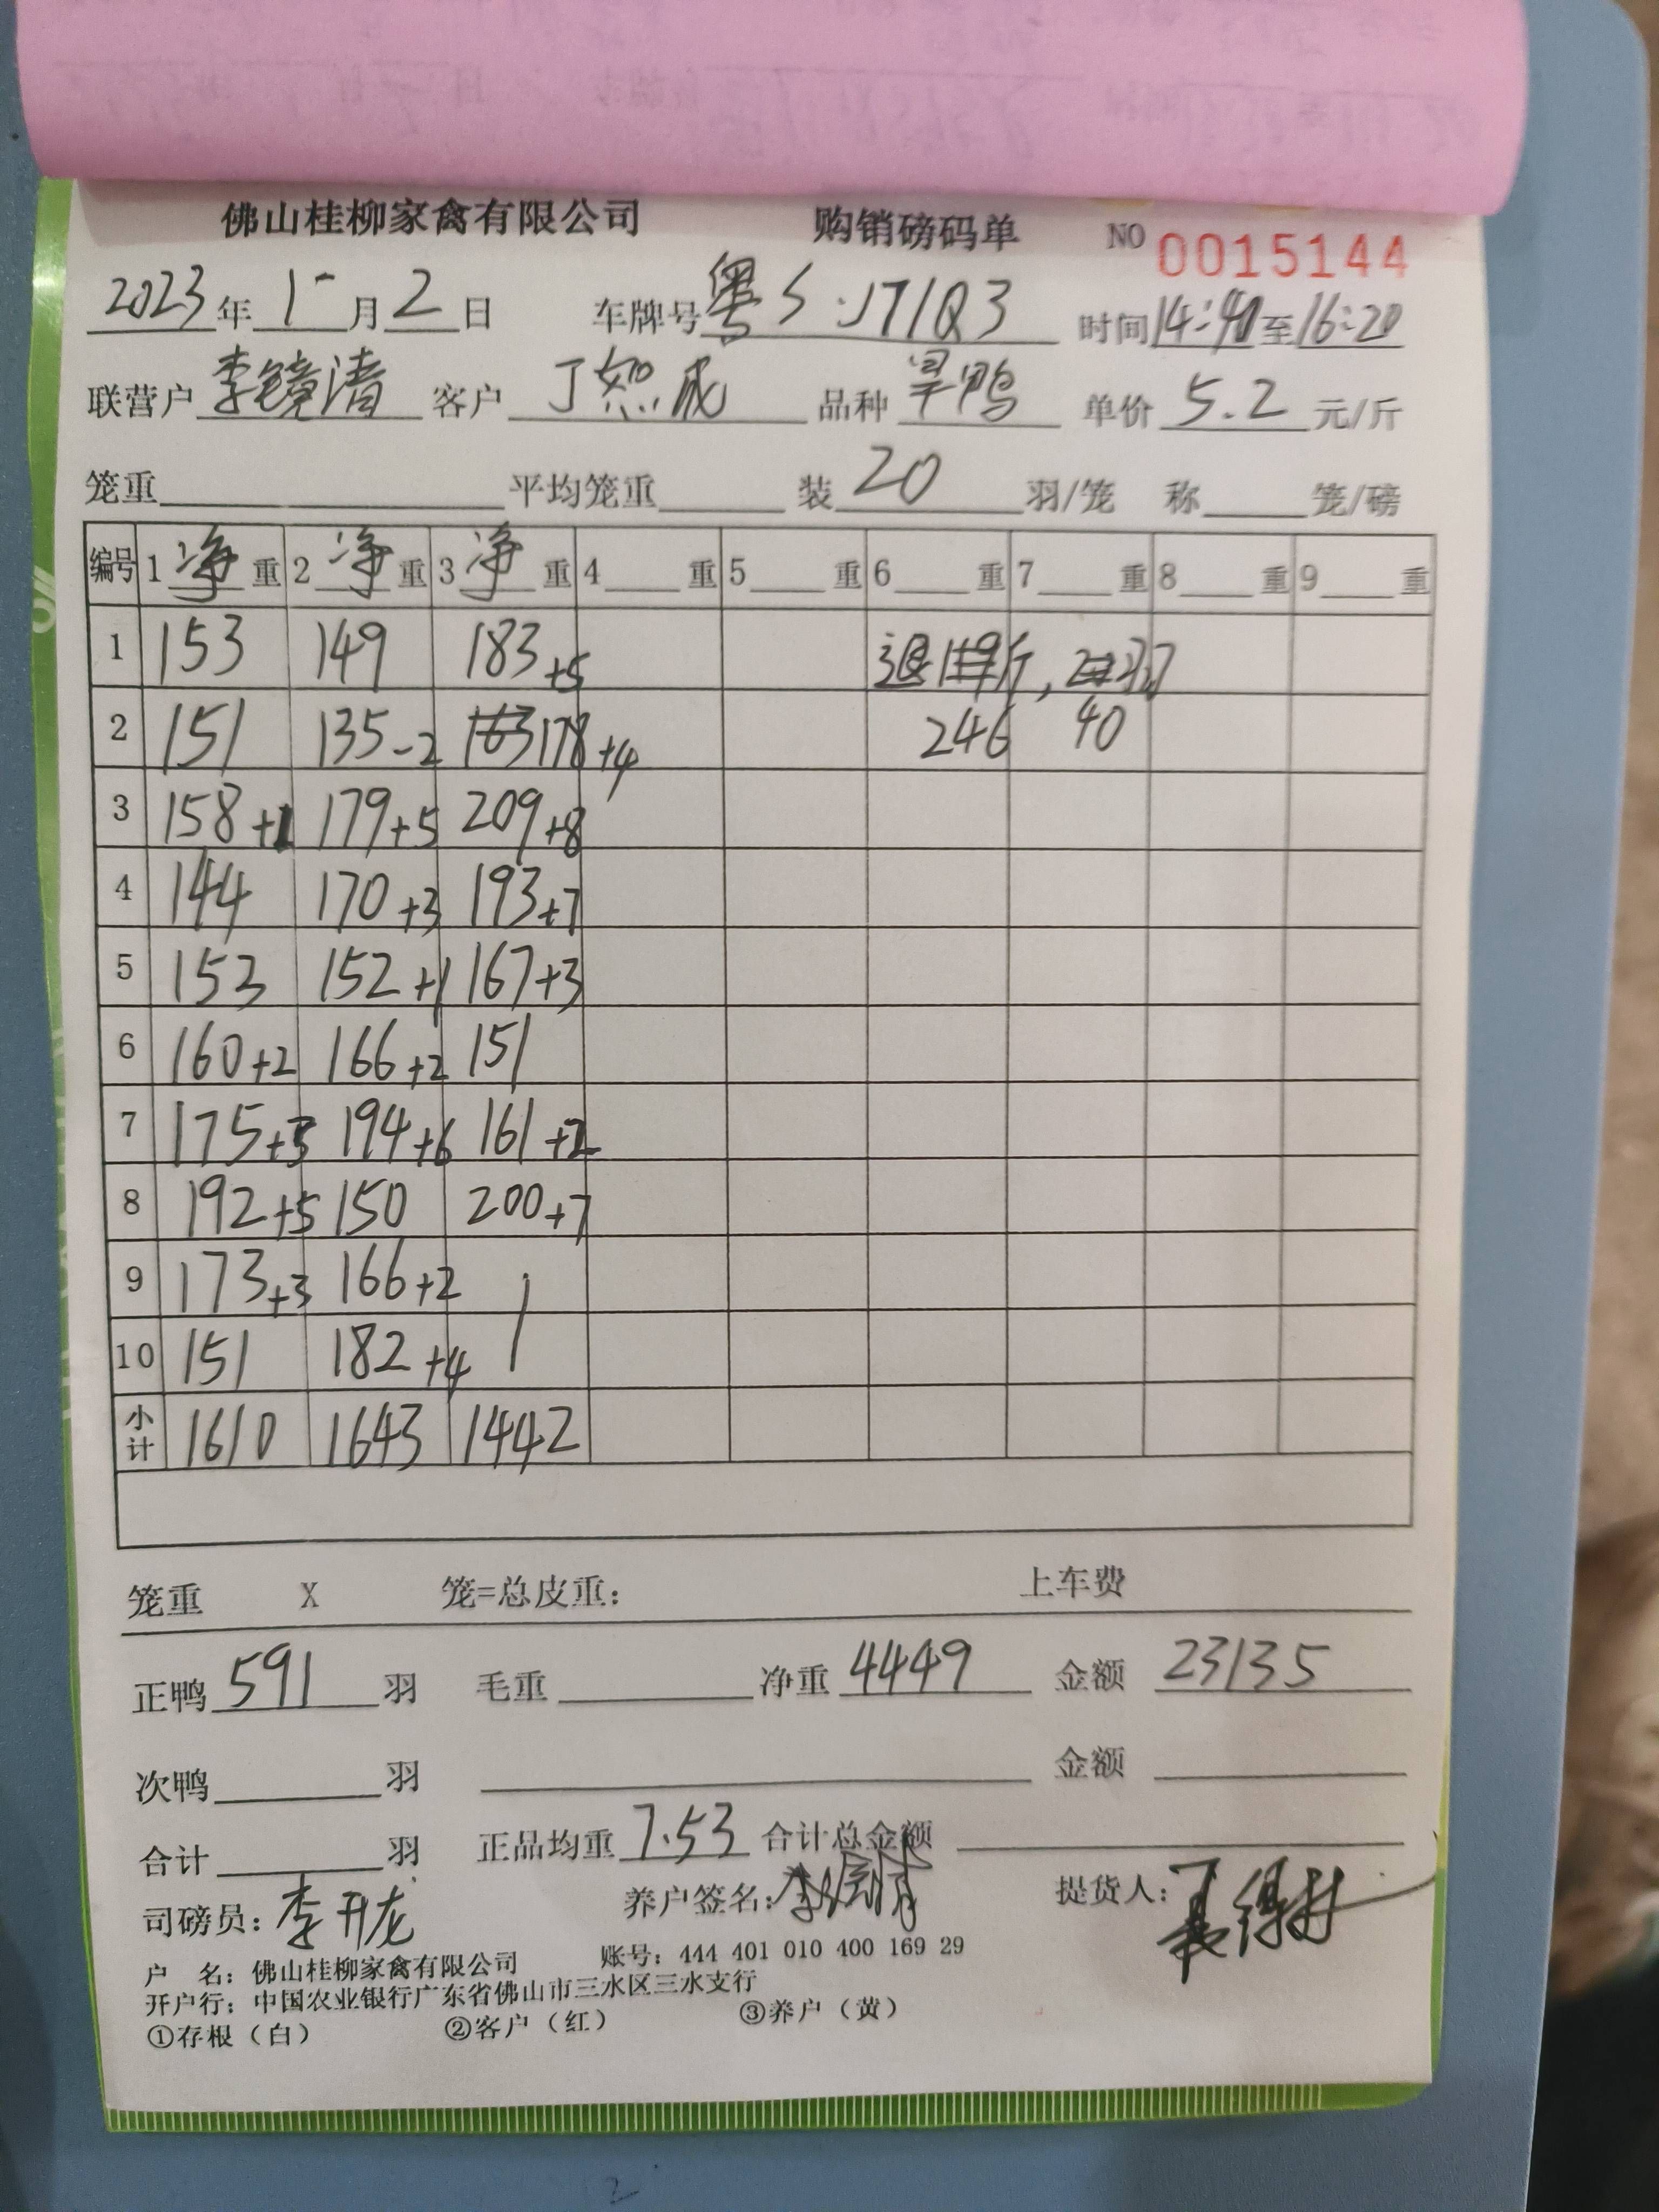 佛山桂柳家禽有限公司 购销磅码单 NO 0015144
2023年1月2日 车牌号 粤S·JT1Q3 时间14:40至16:20
联营户 李镜清 客户 丁恕成 品种 旱鸭 单价 5.2 元/斤
笼重 平均笼重 装 20 羽/笼 称 笼/磅
编号 1 净 重 2 净 重 3 净 重 4 重 5 重 6 重 7 重 8 重 9 重
1 153 149 183+5 退 斤,
2 151 135-2 178+4 246 40
3 158+1 179+5 209+8
4 144 170+3 193+7
5 153 152+1 167+3
6 160+2 166+2 151
7 175+3 194+6 161+2
8 192+5 150 200+7
9 173+3 166+2
10 151 182+4
小计 1610 1643 1442
笼重 X 笼=总皮重: 上车费
正鸭 591 羽 毛重 净重 4449 金额 23135
次鸭 羽 金额
合计 羽 正品均重 7.53 合计总金额
司磅员: 李开龙 养户签名: 提货人:
户 名: 佛山桂柳家禽有限公司 账号: 444 401 010 400 169 29
开户行: 中国农业银行广东省佛山市三水区三水支行
①存根(白) ②客户(红) ③养户(黄)